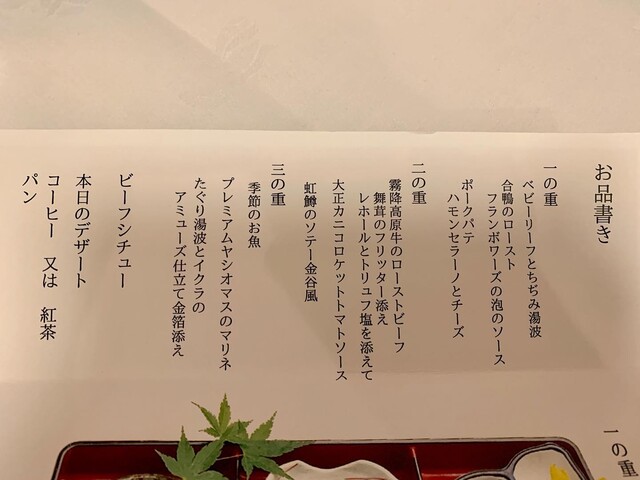 お品書き
一の重
ベビーリーフとちぢみ湯波
合鴨のロースト
フランボワーズの泡のソース
ポークパテ
ハモンセラーノとチーズ
二の重
霧降高原牛のローストビーフ
舞茸のフリッター添え
レホールとトリュフ塩を添えて
大正カニコロケットトマトソース
虹鱒のソテー金谷風
三の重
季節のお魚
プレミアムヤシオマスのマリネ
たぐり湯波とイクラの
アミューズ仕立て金箔添え
ビーフシチュー
本日のデザート
コーヒー 又は 紅茶
パン
一の重